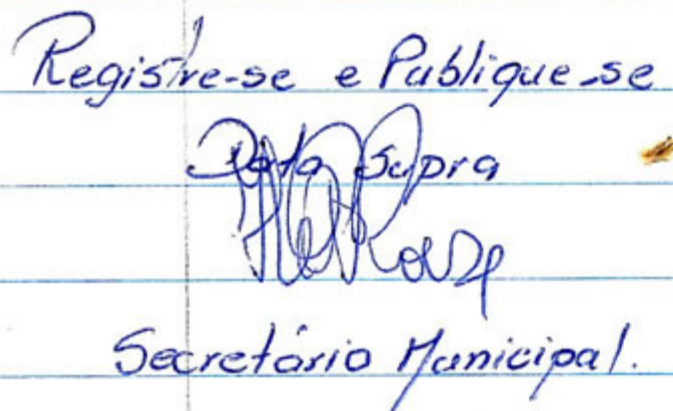 Registre-se e Publique-se
Data Supra
Secretário Municipal.